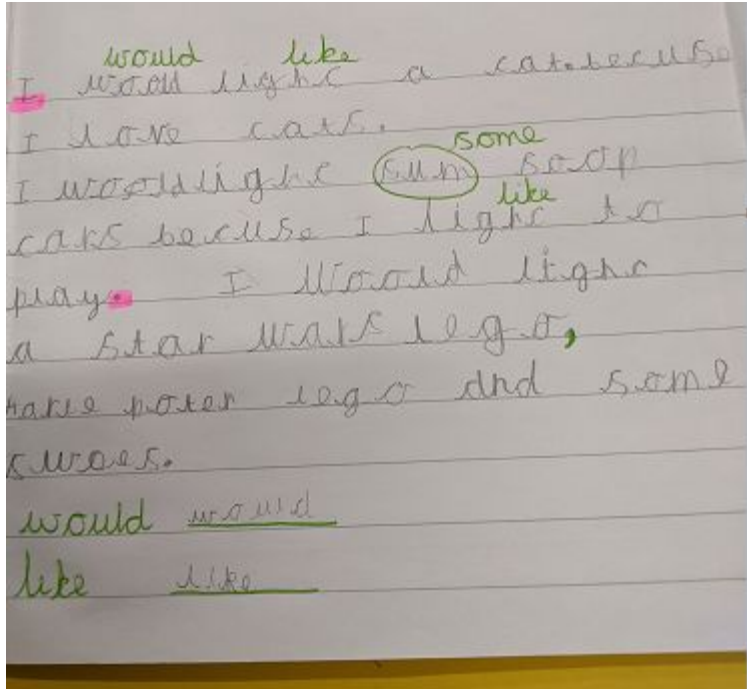 would like
I woold light a cat.becuse
I love cats.
some
I woold light sum soop
like
cars becuse I light to
play. I woold light
a star wars lego,
harie poter lego and some
swoes.
would would
like like